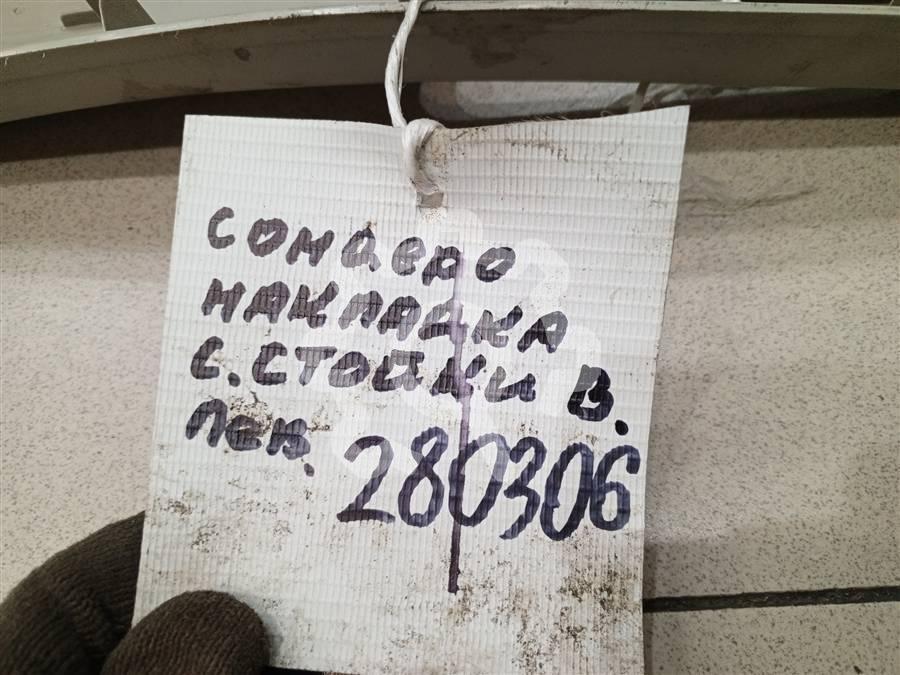 Сондеро
накладка
с. стойки в.
лев.
280306